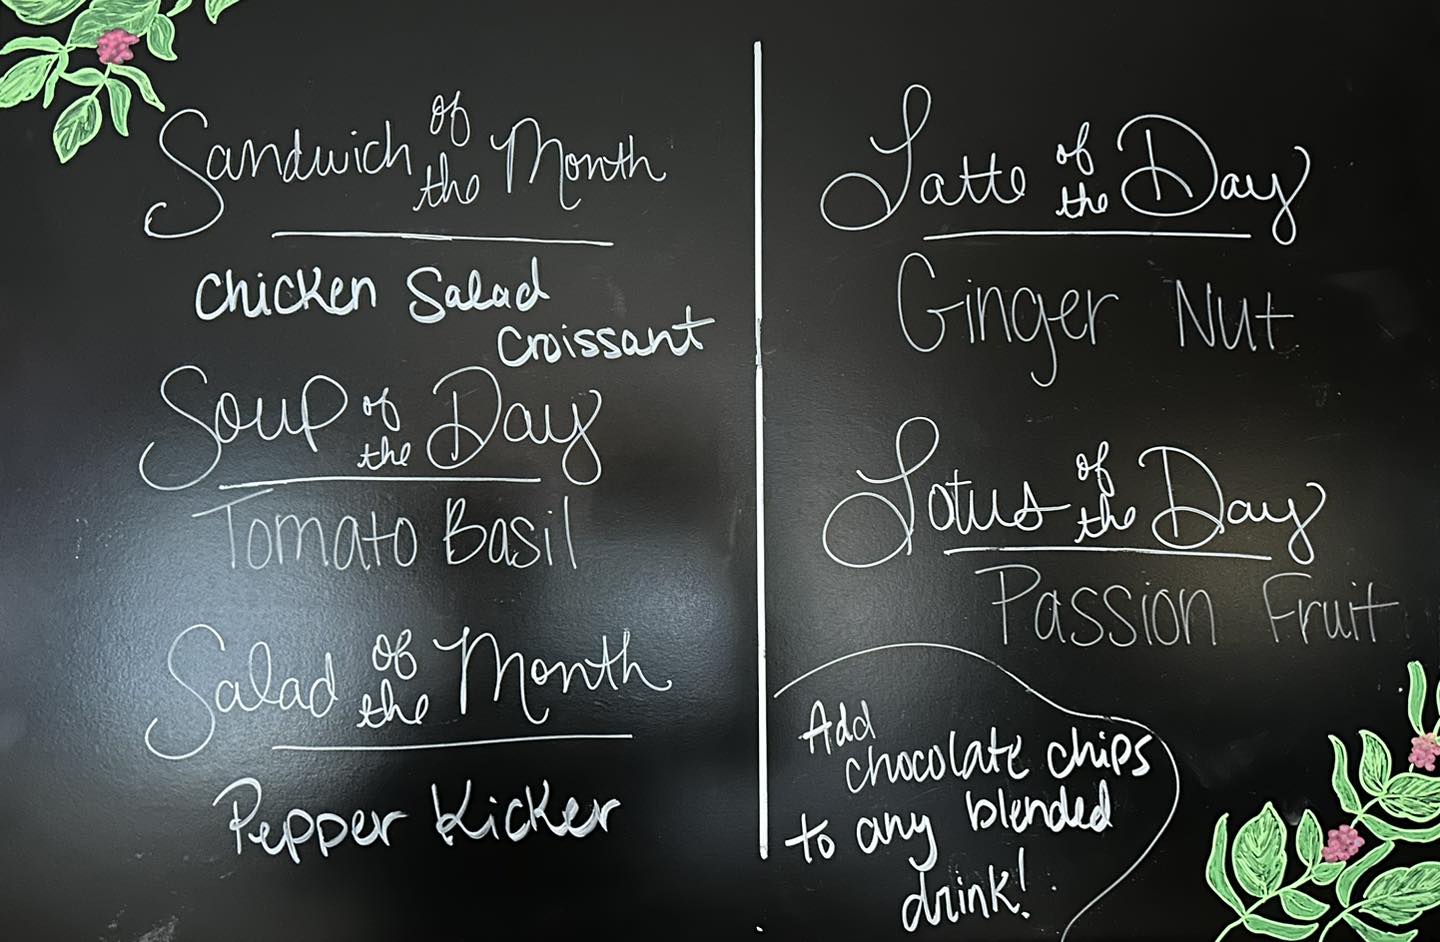 Sandwich of the Month
Chicken Salad
Croissant
Soup of the Day
Tomato Basil
Salad of the Month
Pepper Kicker
Latte of the Day
Ginger Nut
Lotus of the Day
Passion Fruit
Add
chocolate chips
to any blended
drink!